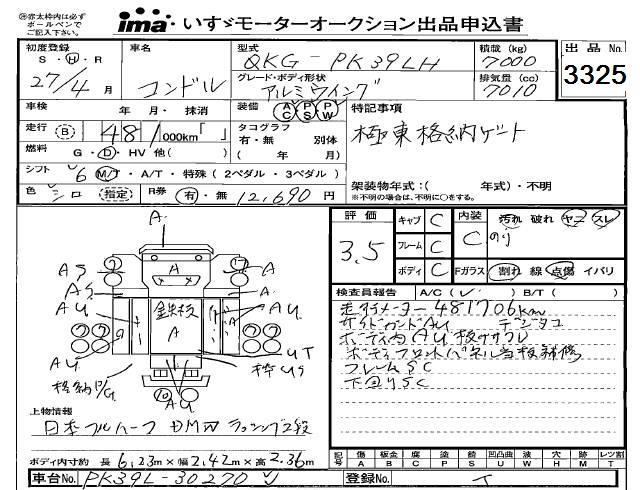 ※赤太枠内は必ず
ボールペンで
ご記入下さい。
ima いすゞモーターオークション出品申込書
初度登録 S・H・R 27/4月
車名 コンドル
型式 QKG-PK39LH
グレード・ボディ形状 アルミウイング
積載(kg) 7000
排気量(cc) 7010
出品No. 3325
車検 年 月・抹消
装備 AC PS PW
走行 B 481,000km「 」
タコグラフ 有・無 別体
( 年 月)
燃料 G・D・HV 他( )
シフト 6 M/T・A/T・特殊(2ペダル・3ペダル)
色 シロ (指定) R券 有・無 12,690円
特記事項
極東格納ゲート
架装物年式:( 年式)・不明
※不明の場合は、不明に○をする。
評価 3.5
キャブ C
フレーム C
ボディ C
内装 C 汚れ 破れ ヤニ スレ
のり
Fガラス 割れ 線 点傷 イバリ
検査員報告 A/C( ) B/T( )
走行メーター481706km
サイドガードAU デジタコ
ボディ内AU 板ササクレ
ボディフロントパネル当板補修
フレームSC
下回りSC
A
AS A A
AS A
AU 鉄板 AU
A
AU UT
格納P/G 枠US
AU
上物情報
日本フルハーフ ラッシング2段
ボディ内寸約 長6.23m×幅2.42m×高2.36m
記号 傷A 板金B 腐C 塗P 錆S 凹凸曲U 波W 穴H 跡M レツ割T
車台No. PK39L-30270
登録No.